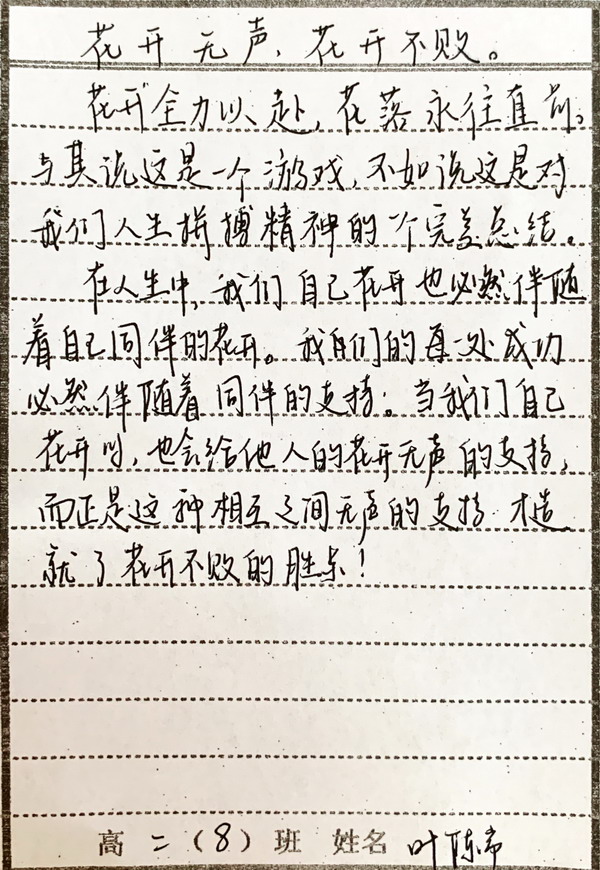 花开无声，花开不败。
花开全力以赴，花落永往直前。
与其说这是一个游戏，不如说这是对
我们人生拼搏精神的一个完美总结。
在人生中，我们自己花开也必然伴随
着自己同伴的花开。我们的每一处成功
必然伴随着同伴的支持。当我们自己
花开时，也会给他人的花开无声的支持，
而正是这种相互之间无声的支持才造
就了花开不败的胜景！
高二（8）班 姓名 叶陈